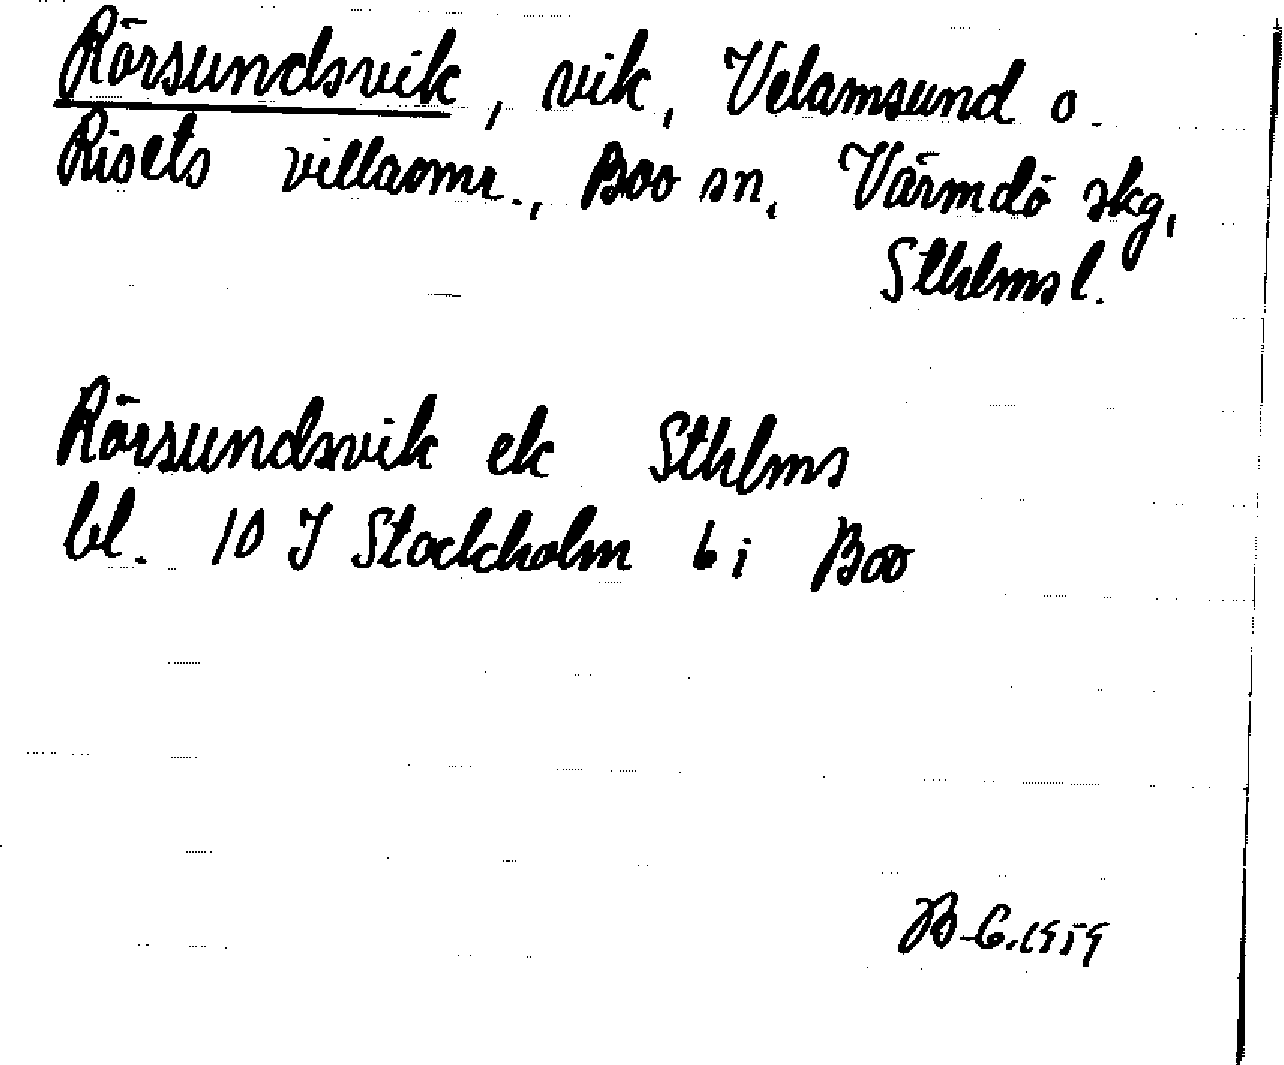 Rörsundsvik, vik, Velamsund o.
Risets villaomr., Boo sn, Värmdö skg,
Sthlms l.
Rörsundsvik ek Sthlms
bl. 10 I Stockholm 6 i Boo
B-G.1959